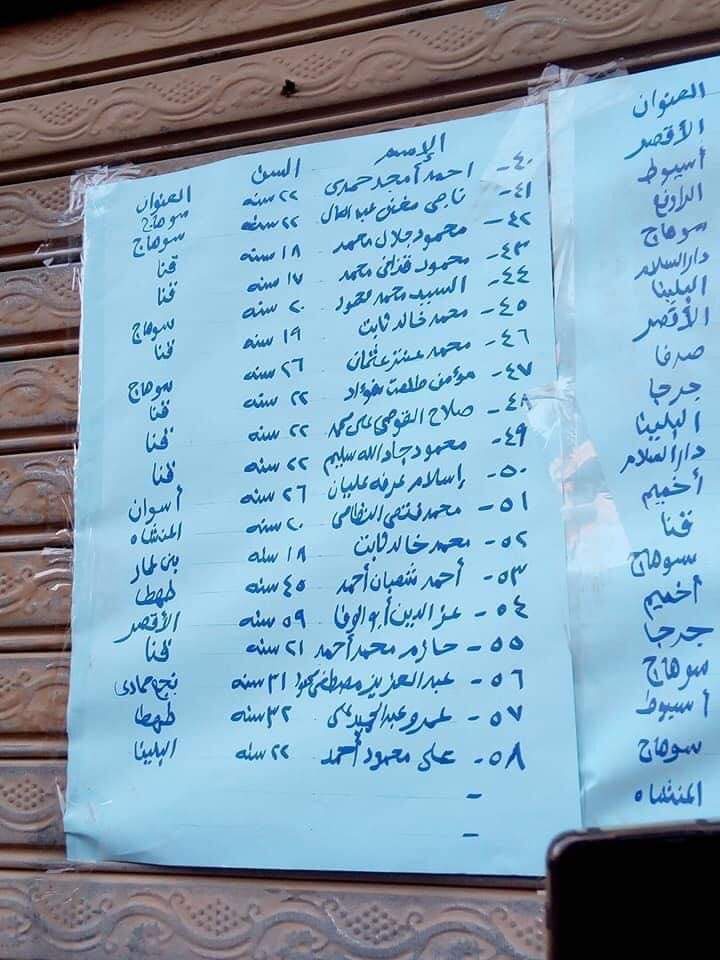 الإسم السن العنوان
٤٠- احمد أمجد حمدى ٢٢ سنه سوهاج
٤١- ناجى عبد العال ٢٢ سنه سوهاج
٤٢- محمود جلال محمد ١٨ سنه قنا
٤٣- محمود قذافى محمد ١٧ سنه قنا
٤٤- السيد محمد محمود ٢٠ سنه سوهاج
٤٥- محمد خالد ثابت ١٩ سنه قنا
٤٦- محمد عنتر عثمان ٢٦ سنه سوهاج
٤٧- مؤمن طلعت فؤاد ٢٢ سنه قنا
٤٨- صلاح على محمد ٢٢ سنه قنا
٤٩- محمود جاد الله سليم ٢٢ سنه قنا
٥٠- إسلام عرفه عليان ٢٦ سنه أسوان
٥١- محمد فتحى ٢٠ سنه المنشاه
٥٢- محمد خالد ثابت ١٨ سنه بنى عمار
٥٣- أحمد شعبان أحمد ٤٥ سنه طهطا
٥٤- عز الدين أبو الوفا ٥٩ سنه الأقصر
٥٥- حازم محمد أحمد ٢١ سنه قنا
٥٦- عبد العزيز مصطفى ٣١ سنه نجع حمادى
٥٧- عمرو عبد الحميد على ٣٢ سنه طهطا
٥٨- على محمود أحمد ٢٢ سنه البلينا
-
-
العنوان
الأقصر
أسيوط
سوهاج
دار السلام
البلينا
الأقصر
صدفا
جرجا
البلينا
دار السلام
أخميم
قنا
سوهاج
أخميم
جرجا
سوهاج
أسيوط
سوهاج
المنشاه